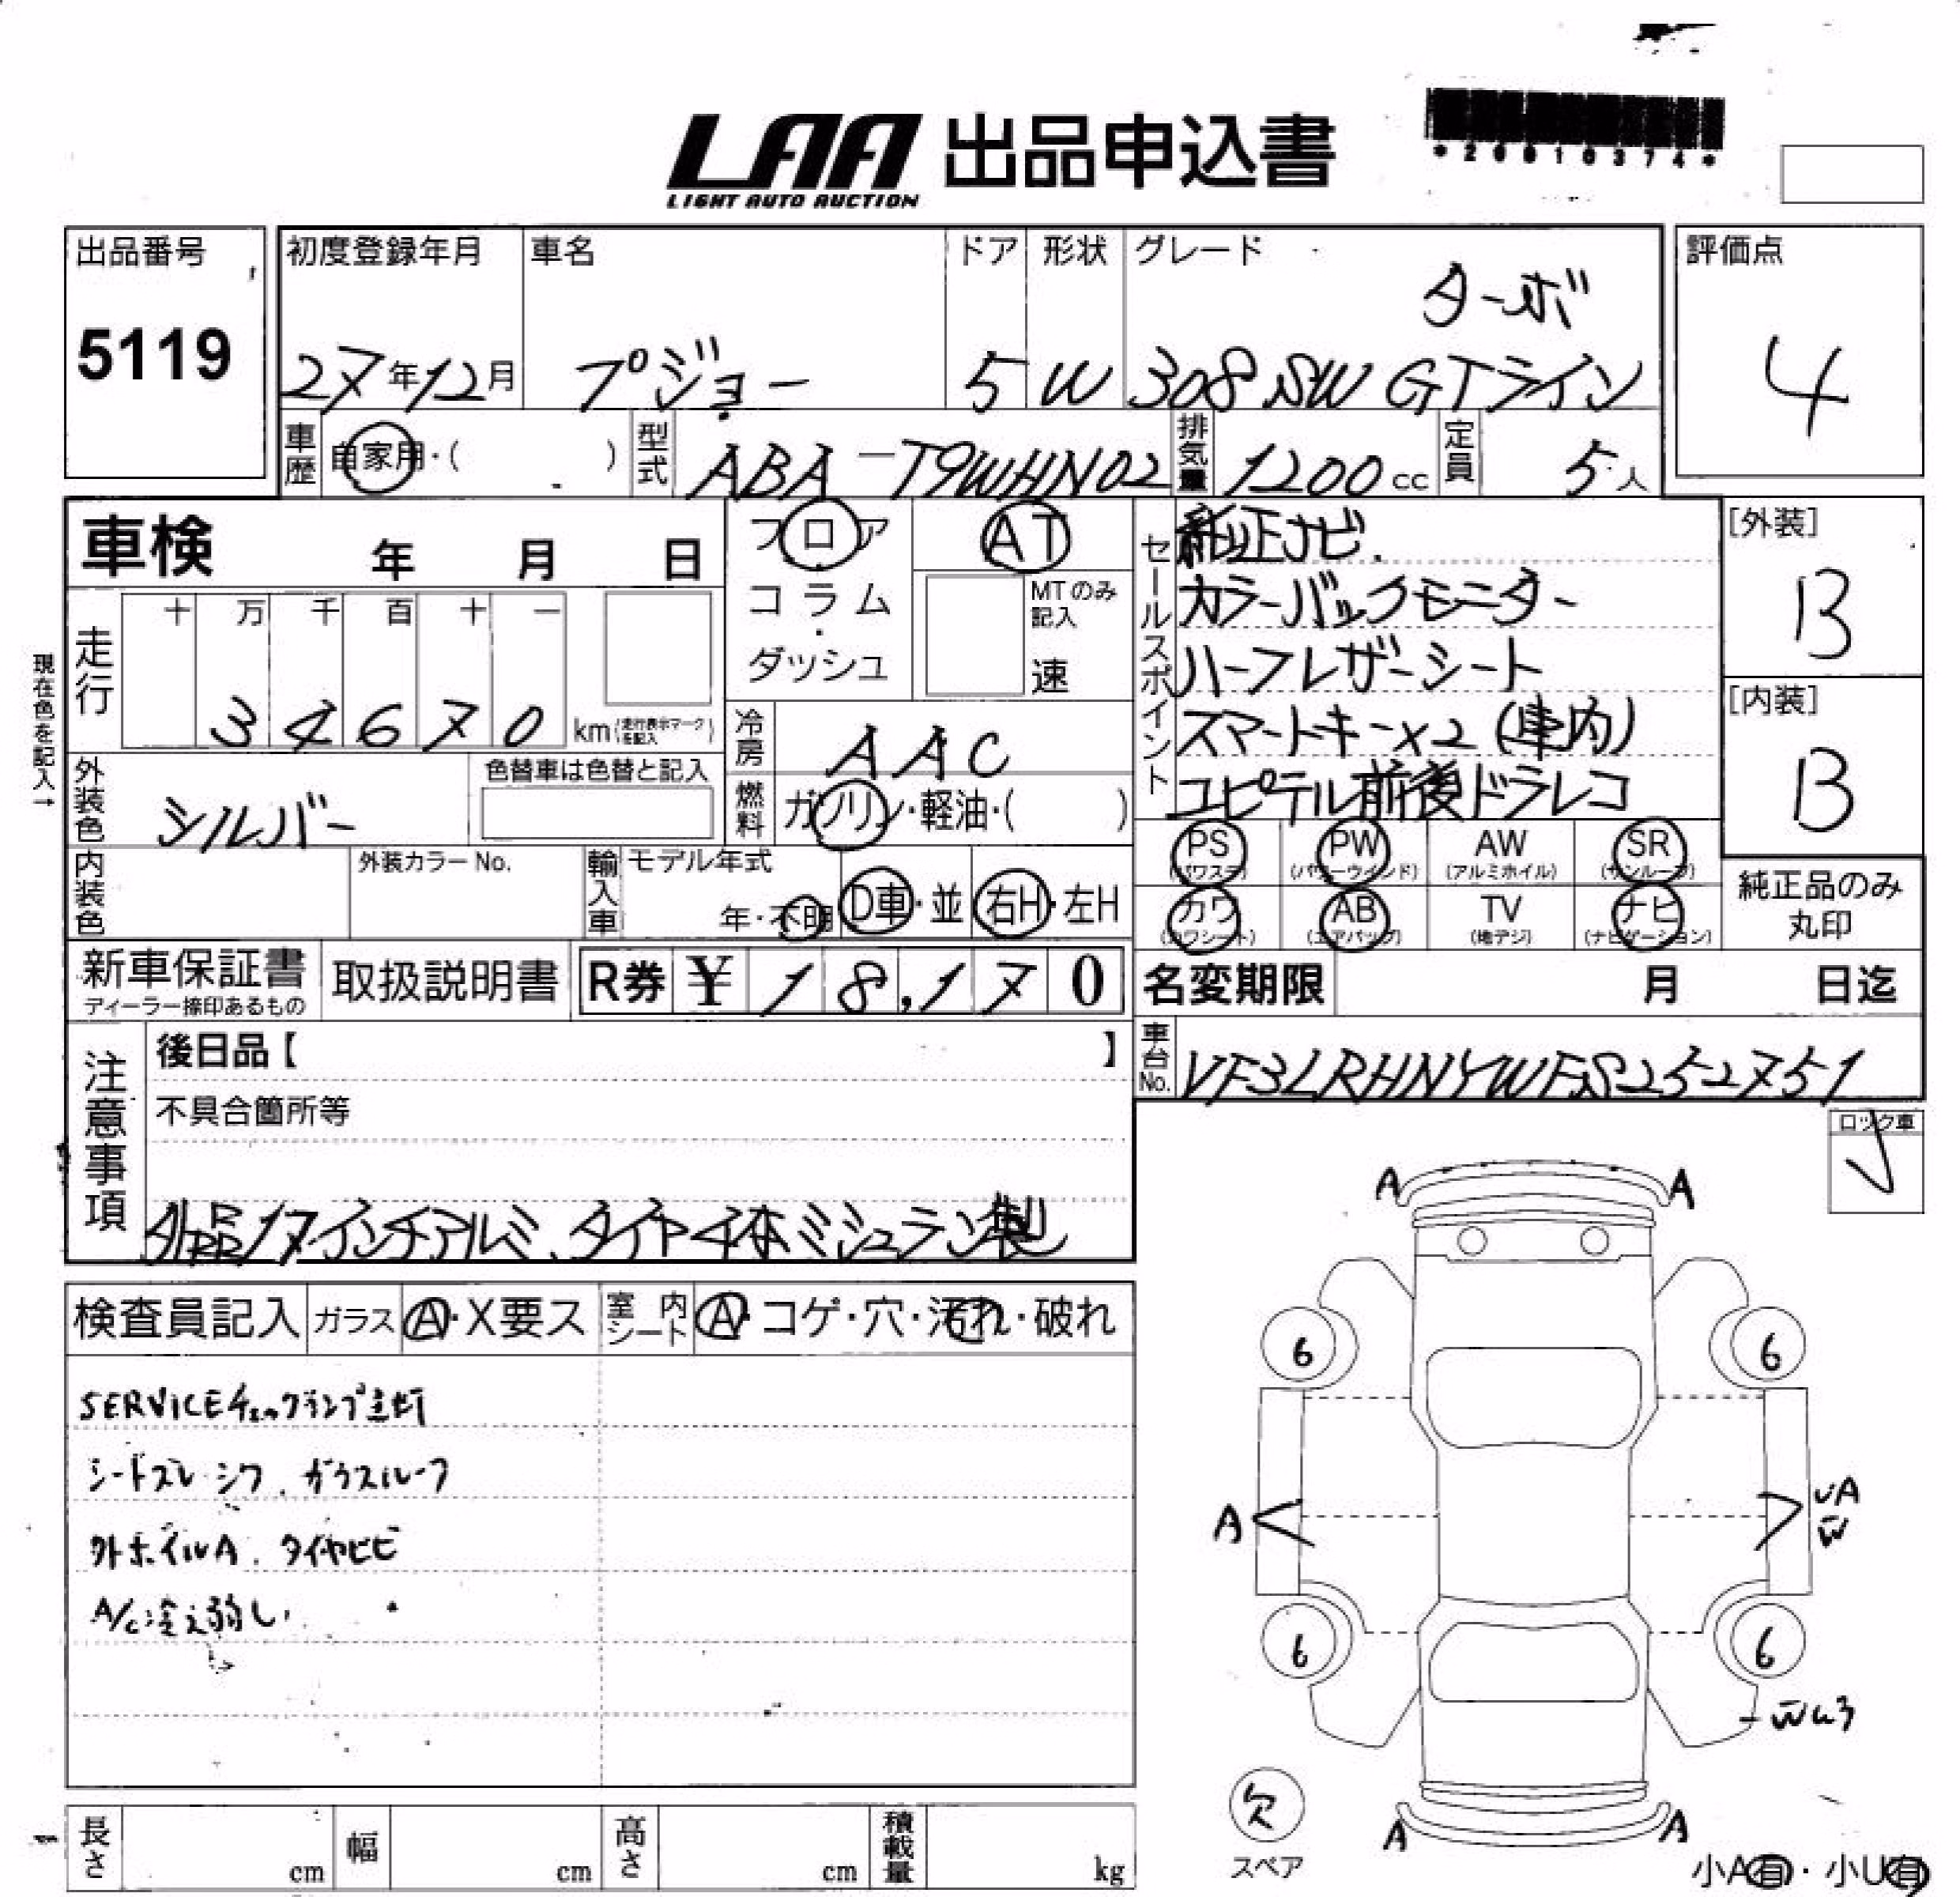 LAA 出品申込書
LIGHT AUTO AUCTION
出品番号 初度登録年月 車名 ドア 形状 グレード 評価点
ターボ
5119 27年12月 プジョー 5 W 308 SW GTライン 4
車歴 自家用・( ) 型式 ABA-T9WHN02 排気量 1200cc 定員 5人
車検 年 月 日
フロア AT
コラム・ダッシュ
MTのみ記入
速
セールスポイント
純正ナビ.
カラーバックモニター
ハーフレザーシート
スマートキーx2 (車内)
ユピテル前後ドラレコ
[外装]
B
[内装]
B
現在色を記入→
走行 十 万 千 百 十 一
3 4 6 7 0 km (走行表示マークを記入)
冷房 AAC
外装色 シルバー 色替車は色替と記入
燃料 ガソリン・軽油・( )
PS (パワステ) PW (パワーウインド) AW (アルミホイル) SR (サンルーフ)
カワ (カワシート) AB (エアバッグ) TV (地デジ) ナビ (ナビゲーション)
純正品のみ
丸印
内装色 外装カラーNo. 輸入車 モデル年式
年・不明 D車・並 右H・左H
新車保証書 取扱説明書 R券 ¥ 18,170
ディーラー捺印あるもの
名変期限 月 日迄
車台No. VF3LRHNYWFS252751
注意事項
後日品【 】
不具合箇所等
外品17インチアルミ、タイヤ4本ミシュラン製
ロック車
検査員記入 ガラス A・X要ス 室内シート A・コゲ・穴・汚れ・破れ
SERVICEチェックランプ点灯
シートスレ シワ. ガラスルーフ
外ホイルA. タイヤヒビ
A/C冷え弱し
A A
6 6
A UA
W
6 6
W U3
欠
スペア
A A
小A有・小U有
長さ cm 幅 cm 高さ cm 積載量 kg